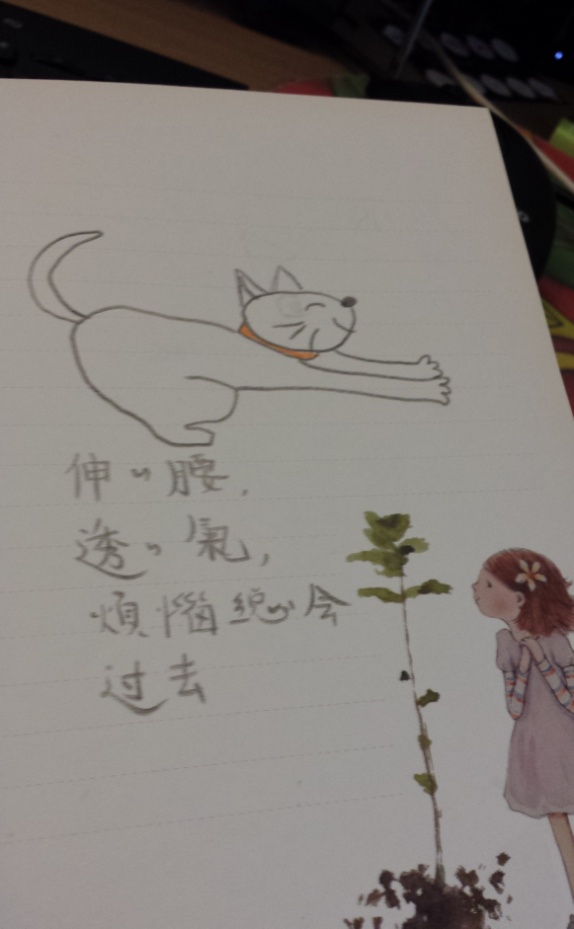 伸〃腰,
透〃氣,
煩惱總会
过去